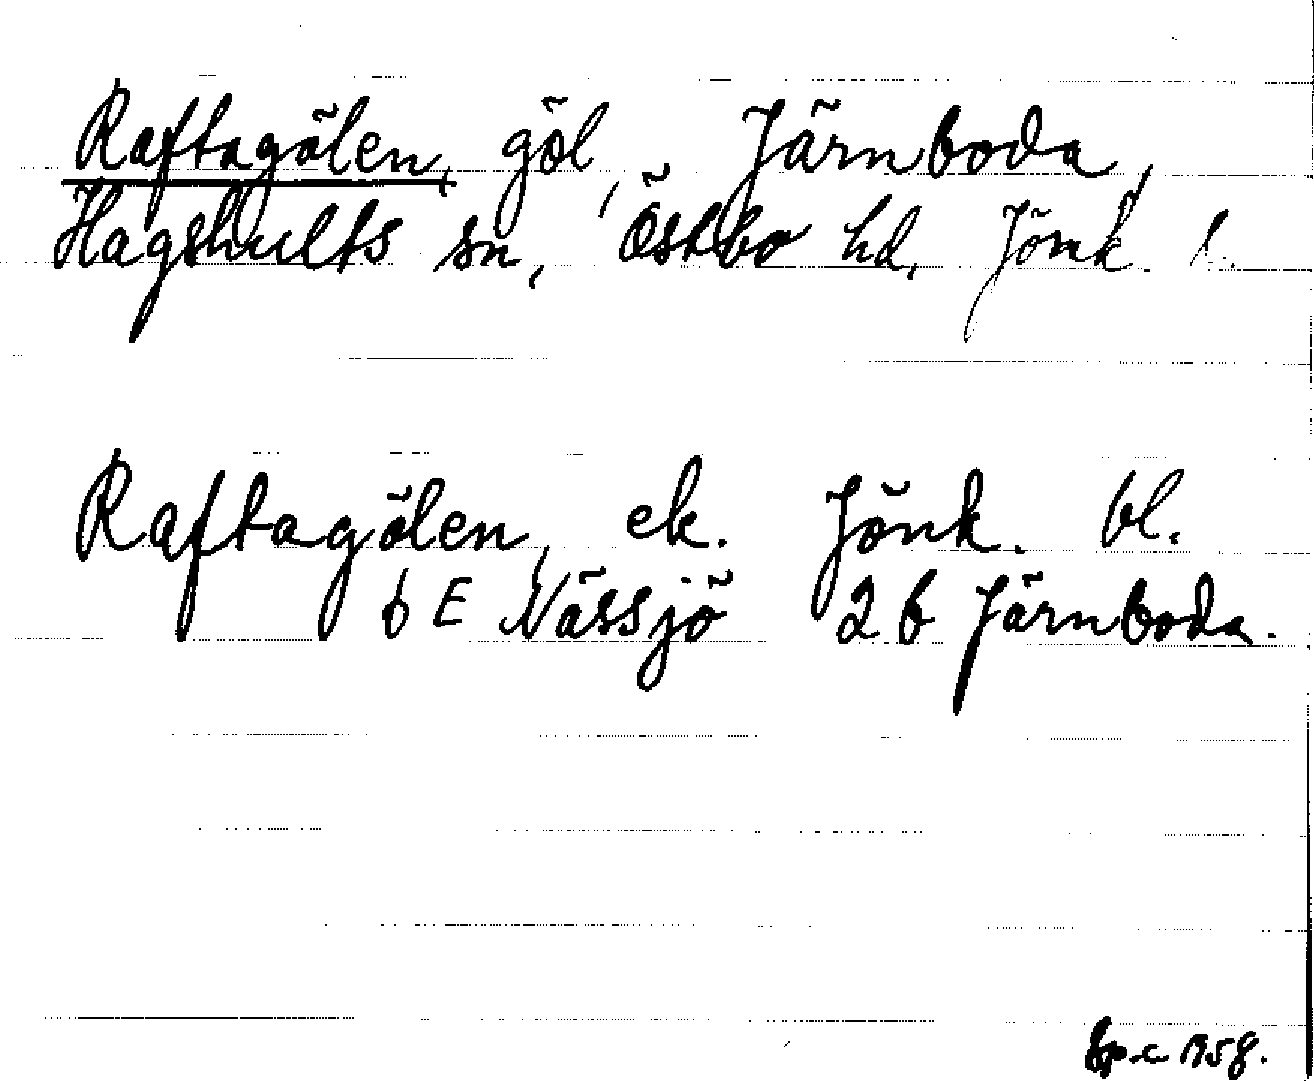 Raftagölen, göl, Järnboda,
Hagshults sn, Östbo hd, Jönk. l.
Raftagölen, ek. Jönk. bl.
6 E Nässjö 2 b Järnboda.
1958.